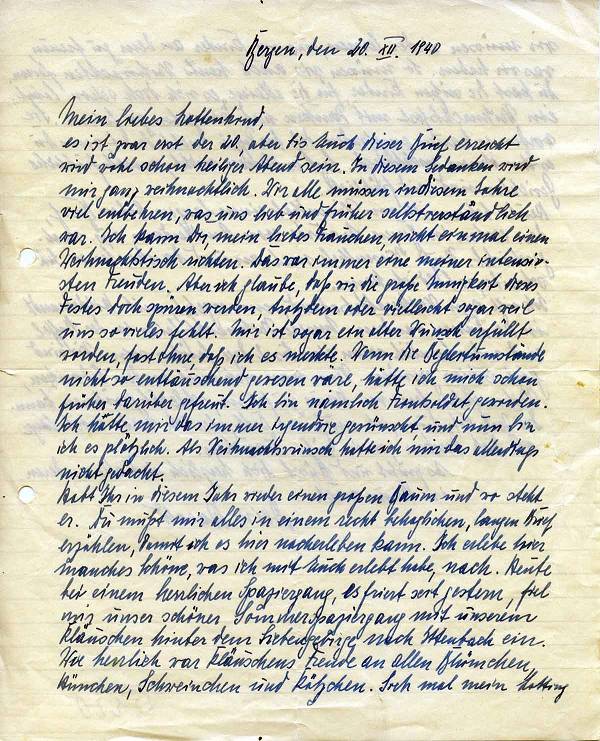 Bergen, den 20. XII. 1940
Mein liebes Lottenkind,
es ist zwar erst der 20, aber bis Euch dieser Brief erreicht
wird wohl schon heiliger Abend sein. In diesem Gedanken wird
mir ganz weihnachtlich. Wir alle müssen in diesem Jahre
viel entbehren, was uns lieb und früher selbstverständlich
war. Ich kann Dir, mein liebes Frauchen, nicht einmal einen
Weihnachtstisch richten. Das war immer eine meiner intensiv-
sten Freuden. Aber ich glaube, daß wir die große Innigkeit dieses
Festes doch spüren werden, trotzdem oder vielleicht sogar weil
uns so vieles fehlt. Mir ist sogar ein alter Wunsch erfüllt
worden, fast ohne, daß ich es merkte. Wenn die Begleitumstände
nicht so enttäuschend gewesen wäre, hätte ich mich schon
früher darüber gefreut. Ich bin nämlich Frontsoldat geworden.
Ich hätte mir das immer irgendwie gewünscht und nun bin
ich es plötzlich. Als Weihnachtswunsch hatte ich mir das allerdings
nicht gedacht.
Habt Ihr in diesem Jahr wieder einen großen Baum und wo steht
er. Du mußt mir alles in einem recht behaglichen, langen Brief
erzählen, damit ich es hier nacherleben kann. Ich erlebe hier
manches Schöne, was ich mit Euch erlebt habe, nach. Heute
bei einem herrlichen Spaziergang, es friert seit gestern, fiel
mir unser schöner Sommerspaziergang mit unserem
Kläuschen hinter dem Siebengebirge nach Ittenbach ein.
Wie herrlich war Kläuschens Freude an allen Blümchen,
Hühnchen, Schweinchen und Kätzchen. Sieh mal mein